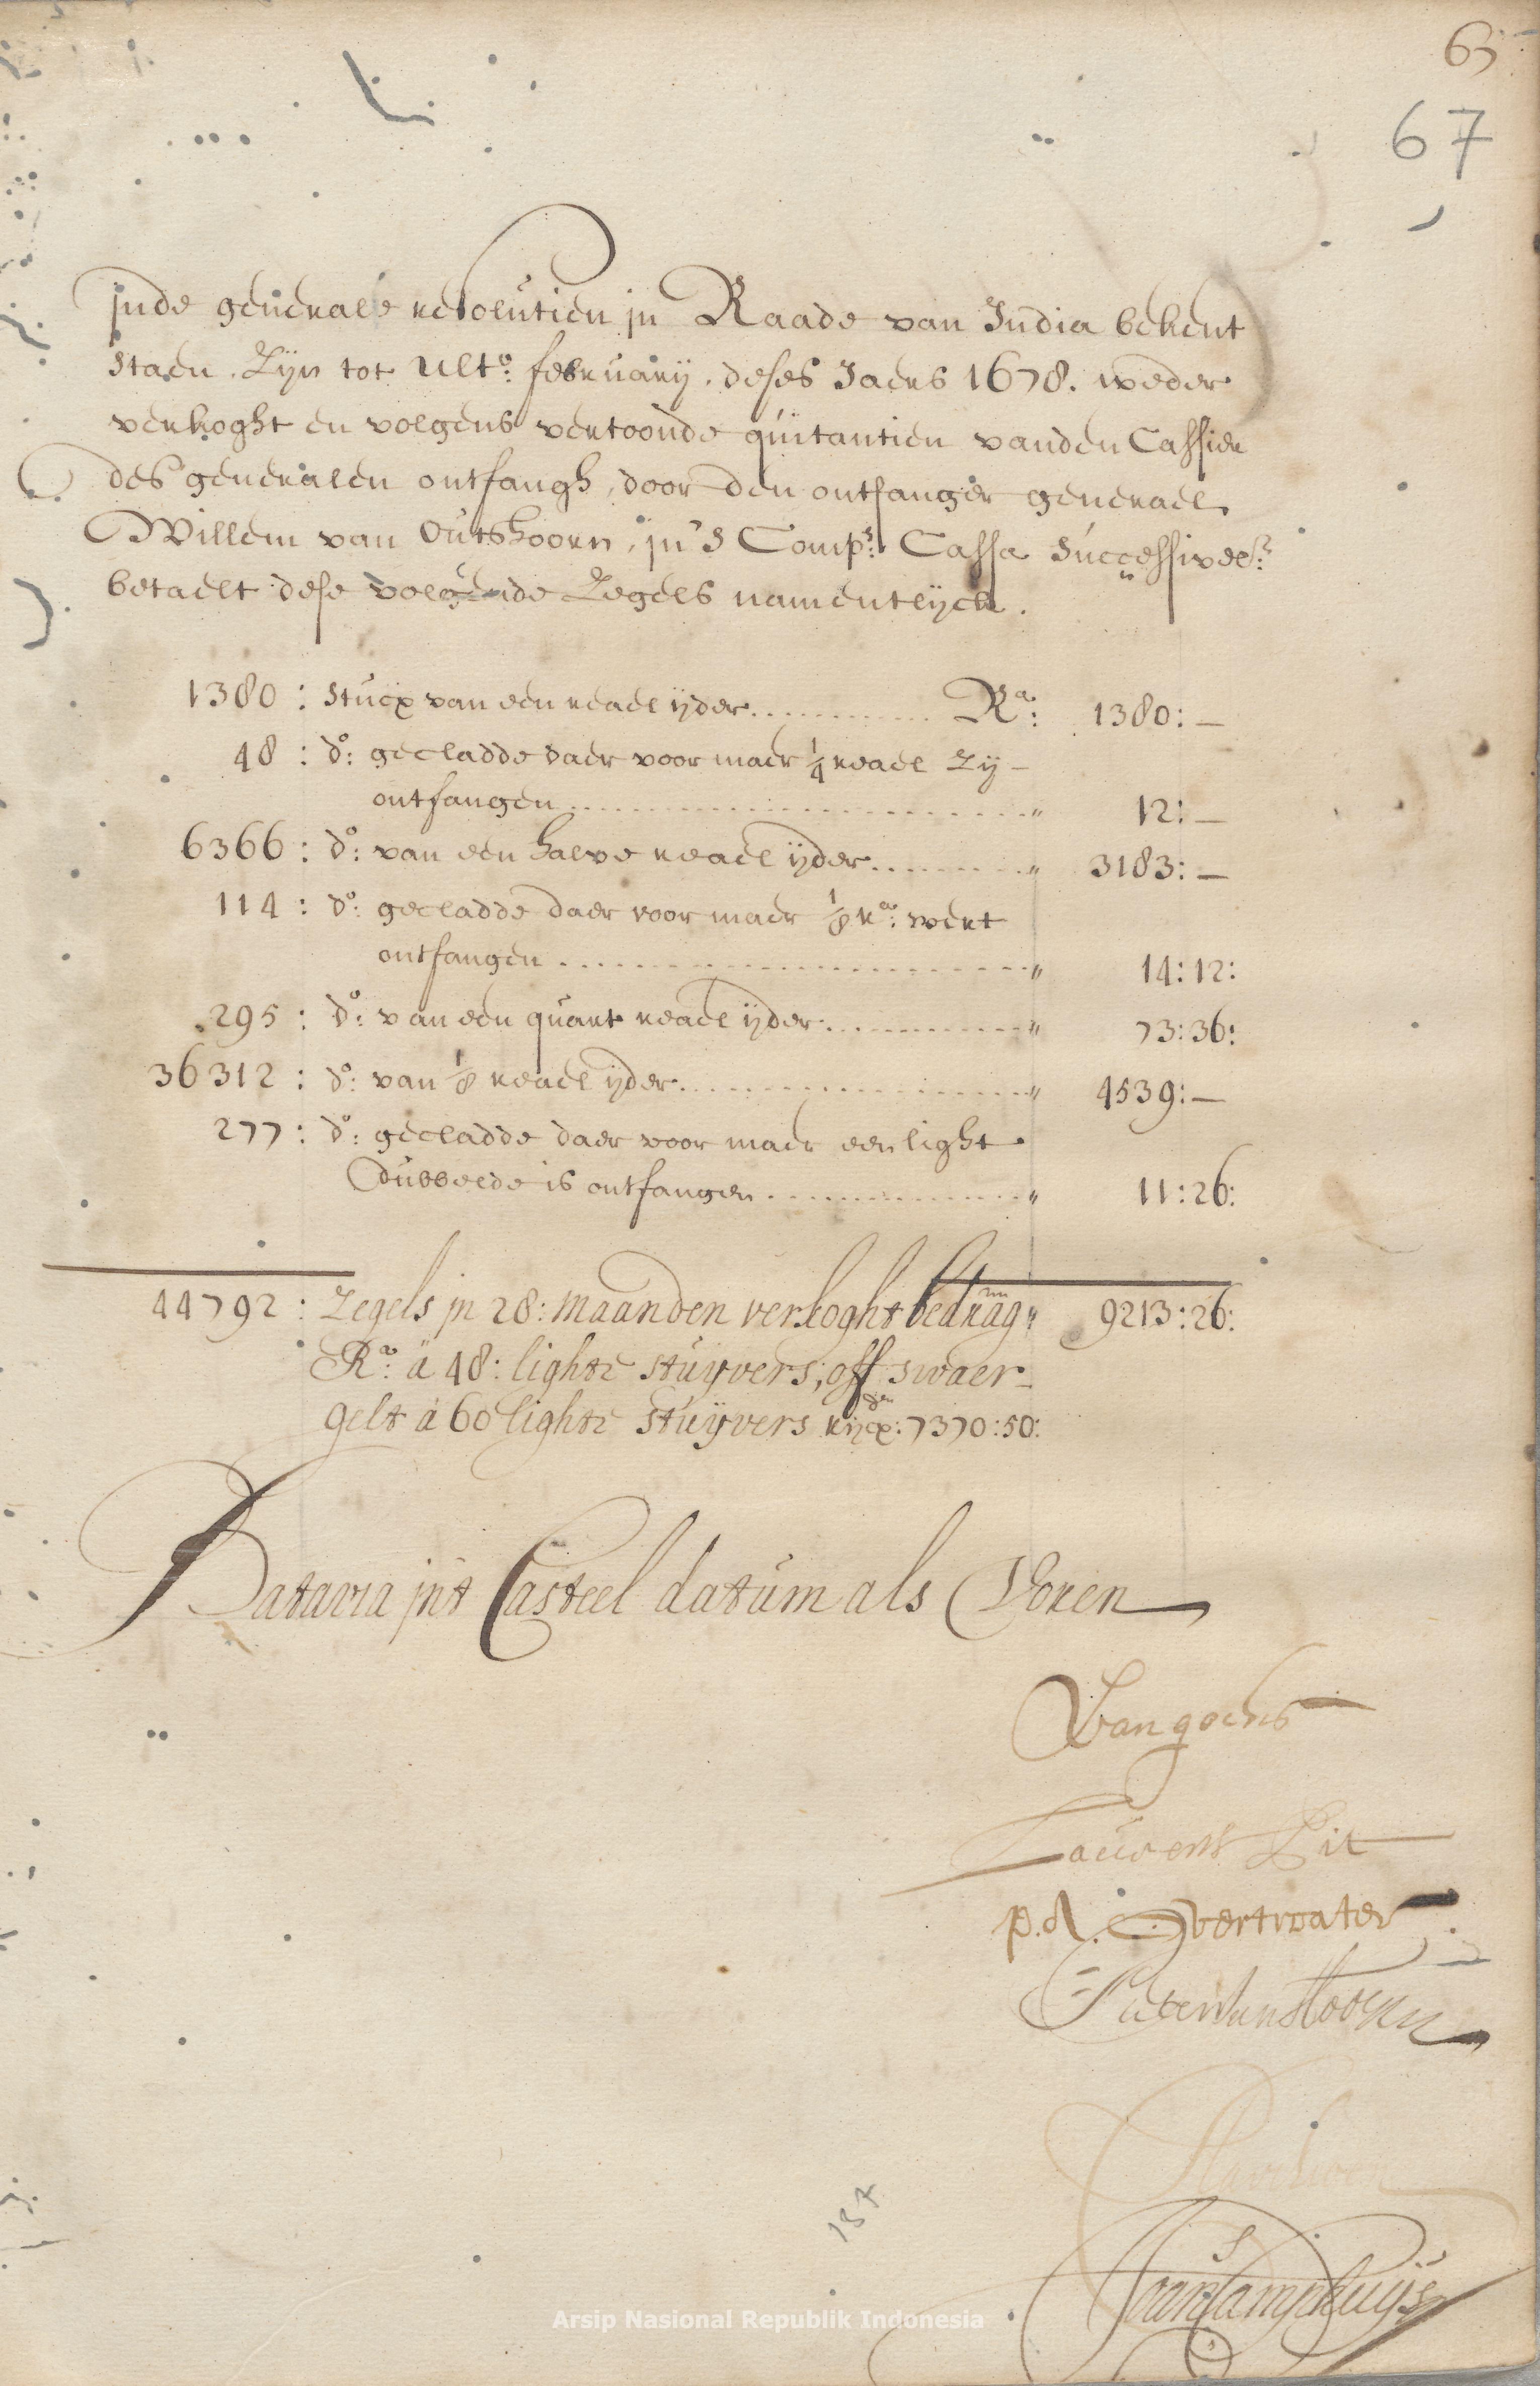 63
67
jnde generale resolutien jn Raade van India bekent
staen. Zijn tot ult:o februarij. deses Jaers 1678. weder
verkoght en volgens vertoonde quitantien vanden Cassier
des generalen ontfangh, door den ontfanger generael
Willem van Outshoorn, jn 's Comp:s Cassa Successivel:r
betaelt dese volgende Zegels namentlijck.
1380 : Stucx van een reael ijder............ R:a 1380:—
48 : d:o gecladde daer voor maer ¼ reael Zij—
ontfangen........................" 12:—
6366 : d:o van een halve reael ijder........" 3183:—
114 : d:o gecladde daer voor maer ⅛ r:a wert
ontfangen........................" 14:12:
295 : d:o van een quart reael ijder............" 73:36:
36312 : d:o van ⅛ reael ijder...................." 4539:—
277 : d:o gecladde daer voor maer een light
Dubbelde is ontfangen................" 11:26:
44792 : Zegels jn 28: maanden verkoght bedrag:" 9213:26:
R:a a 48: lighte stuijvers, off swaer—
gelt a 60 lighte stuijvers rijcx:den 7370:50:
Batavia jn't Casteel datum als Voren
Van goens
Lauwens Pit
p. A. Overtwater
Pieter van Hoorn
Joan Camphuijs
137
Arsip Nasional Republik Indonesia